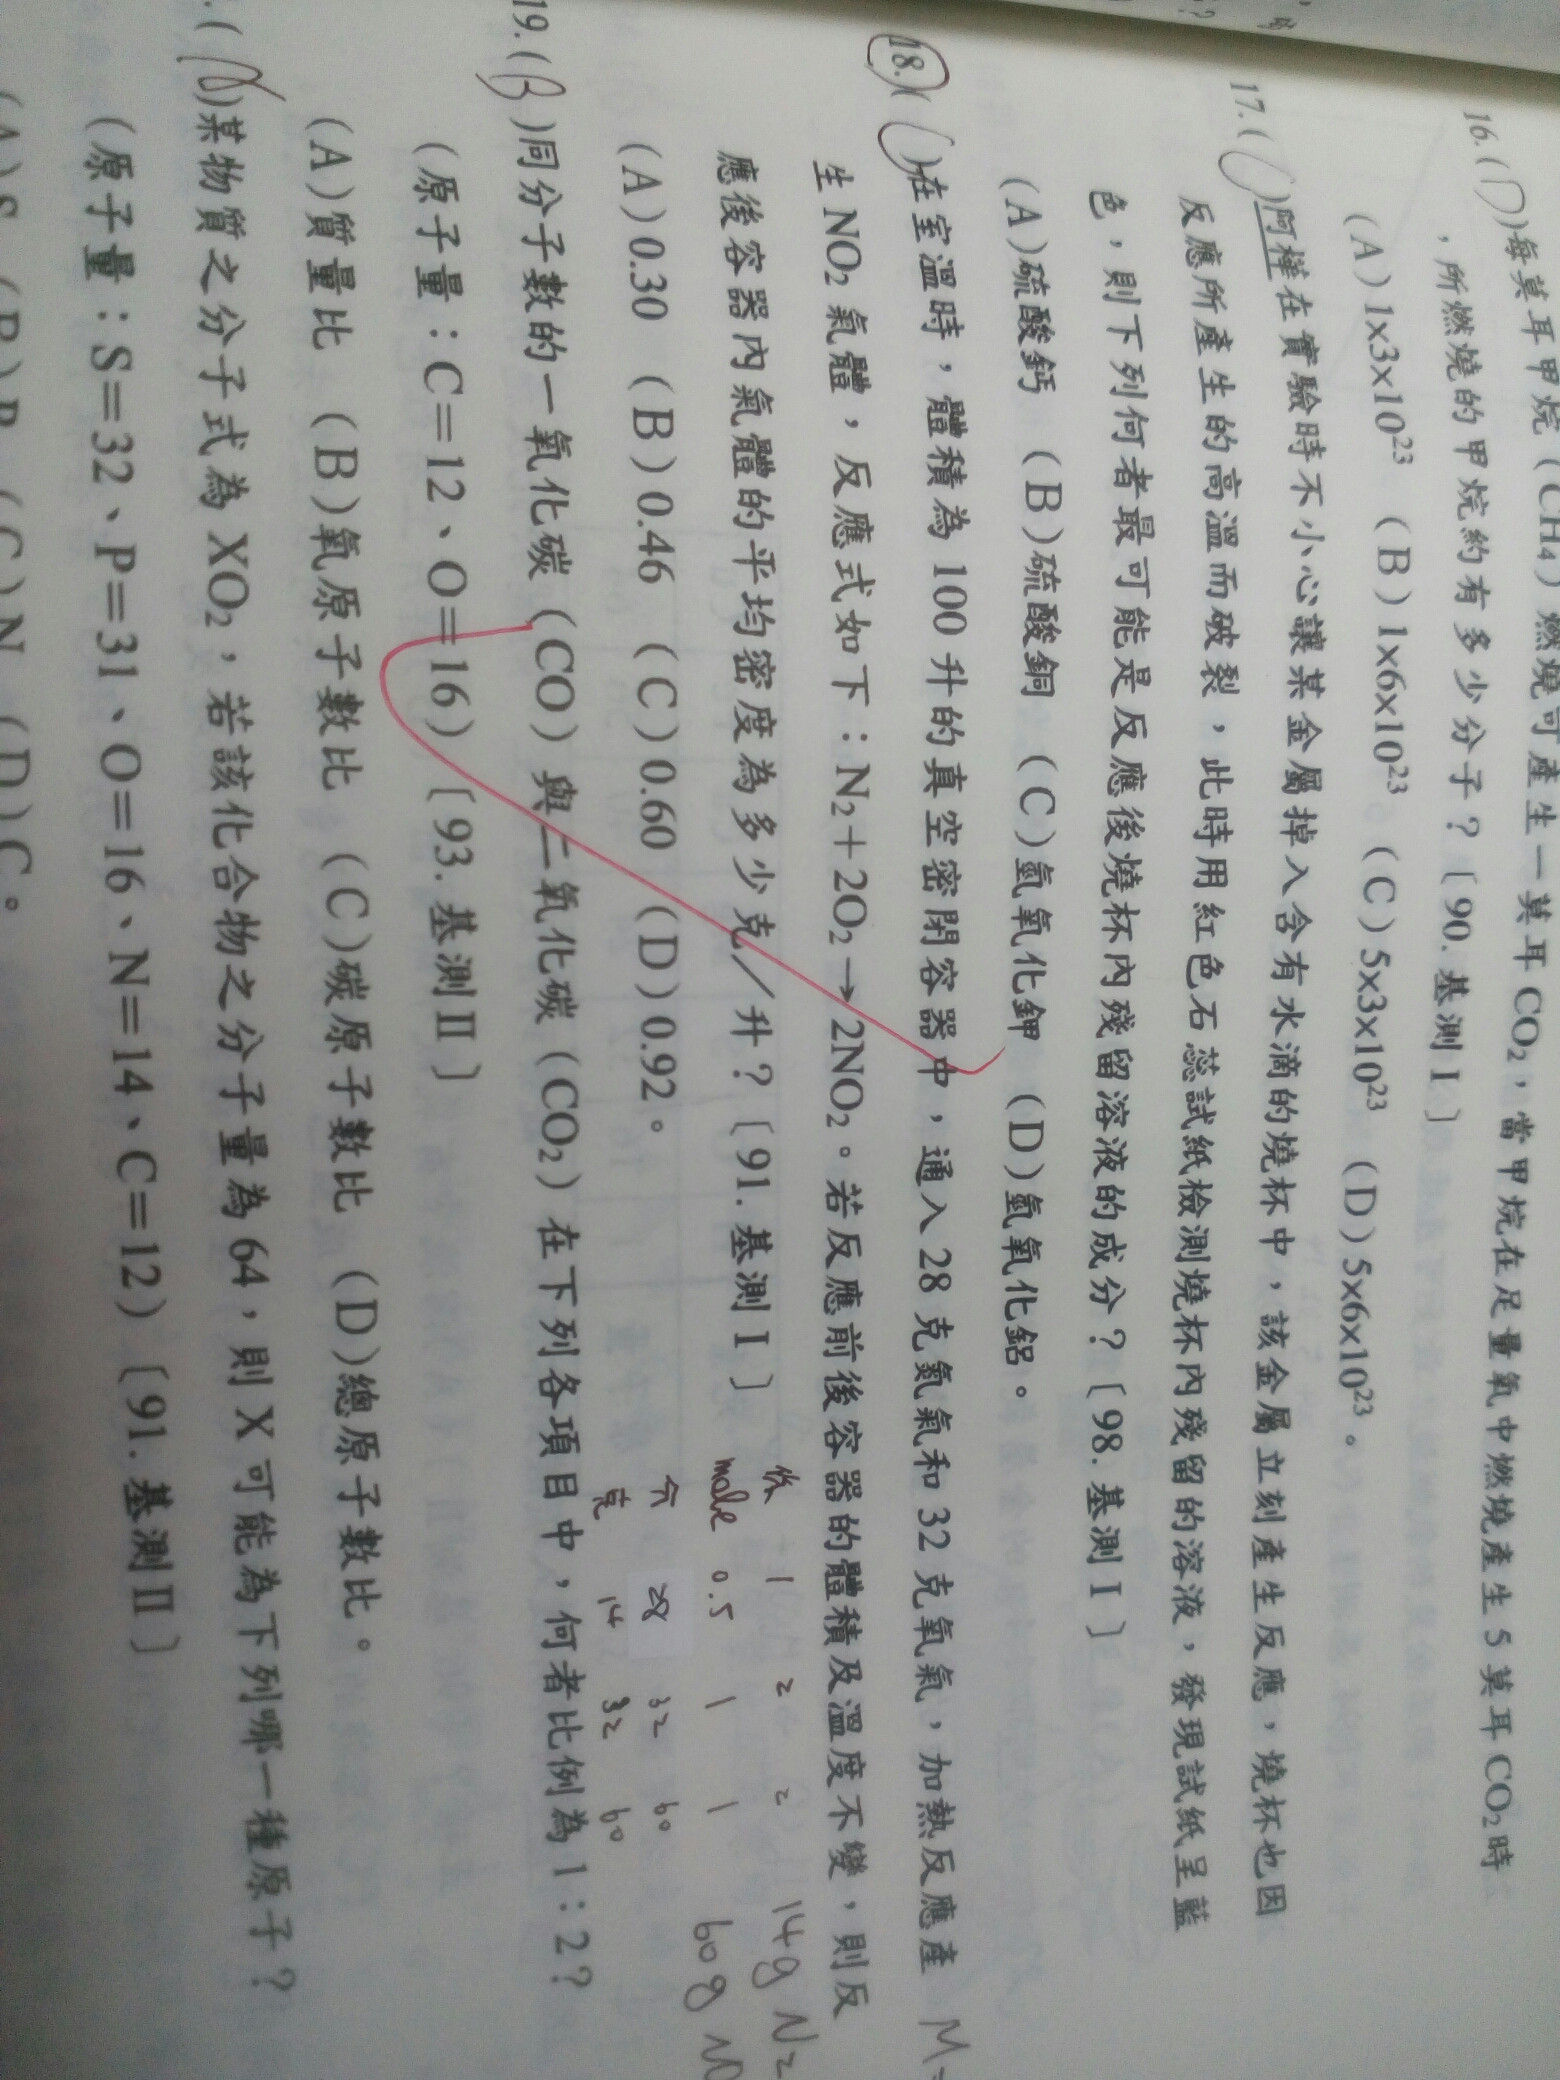 16.(D)每莫耳甲烷(CH4)燃燒可產生一莫耳CO2,當甲烷在足量氧中燃燒產生5莫耳CO2時
,所燃燒的甲烷約有多少分子?〔90.基測I〕
(A)1x3x10²³ (B)1x6x10²³ (C)5x3x10²³ (D)5x6x10²³。
17.(C)阿樺在實驗時不小心讓某金屬掉入含有水滴的燒杯中,該金屬立刻產生反應,燒杯也因
反應所產生的高溫而破裂,此時用紅色石蕊試紙檢測燒杯內殘留的溶液,發現試紙呈藍
色,則下列何者最可能是反應後燒杯內殘留溶液的成分?〔98.基測I〕
(A)硫酸鈣 (B)硫酸銅 (C)氫氧化鉀 (D)氫氧化鋁。
18.(C)在室溫時,體積為100升的真空密閉容器中,通入28克氮氣和32克氧氣,加熱反應產
生NO2氣體,反應式如下:N2+2O2→2NO2。若反應前後容器的體積及溫度不變,則反
應後容器內氣體的平均密度為多少克/升?〔91.基測I〕
(A)0.30 (B)0.46 (C)0.60 (D)0.92。
1 2 2
mole 0.5 1 1
分 28 32 60
克 14 32 60
M=
14g N2
60g NO
19.(B)同分子數的一氧化碳(CO)與二氧化碳(CO2)在下列各項目中,何者比例為1:2?
(原子量:C=12、O=16)〔93.基測II〕
(A)質量比 (B)氧原子數比 (C)碳原子數比 (D)總原子數比。
.( )某物質之分子式為XO2,若該化合物之分子量為64,則X可能為下列哪一種原子?
(原子量:S=32、P=31、O=16、N=14、C=12)〔91.基測II〕
(A)S (B)P (C)N (D)C。